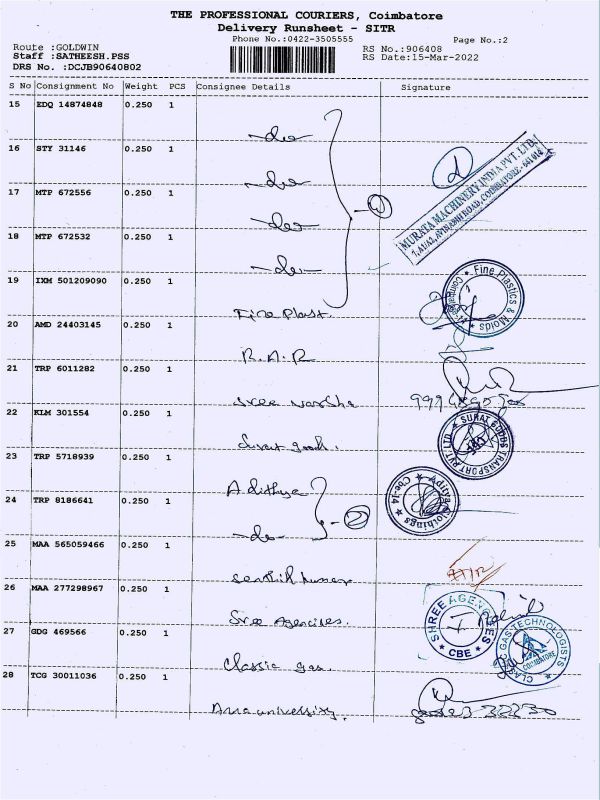 THE PROFESSIONAL COURIERS, Coimbatore
Delivery Runsheet - SITR
Phone No.:0422-3505555 Page No.:2
Route :GOLDWIN RS No.:906408
Staff :SATHEESH.PSS RS Date:15-Mar-2022
DRS No. :DCJB90640802
S No Consignment No Weight PCS Consignee Details Signature
15 EDQ 14874848 0.250 1
-do-
16 STY 31146 0.250 1
-do-
17 MTP 672556 0.250 1
-do-
18 MTP 672532 0.250 1
-do-
MURATA MACHINERY INDIA PVT. LTD.
AVINASHI ROAD, COIMBATORE - 641 014
19 IXM 501209090 0.250 1
Fine Plast.
Fine Plastics & Molds
20 AMD 24403145 0.250 1
R.A.R
21 TRP 6011282 0.250 1
Sree Varsha
22 KLM 301554 0.250 1
Surat goods.
SURAT GOODS TRANSPORT PVT. LTD
23 TRP 5718939 0.250 1
Adithya
Aditya Clothings
Cbe-14
24 TRP 8186641 0.250 1
-do-
25 MAA 565059466 0.250 1
Senthil kumar
26 MAA 277298967 0.250 1
Sree Agencies.
SHREE AGENCIES
CBE
27 GDG 469566 0.250 1
Classic gas.
CLASSIC GAS TECHNOLOGISTS
COIMBATORE
28 TCG 30011036 0.250 1
Anna university.